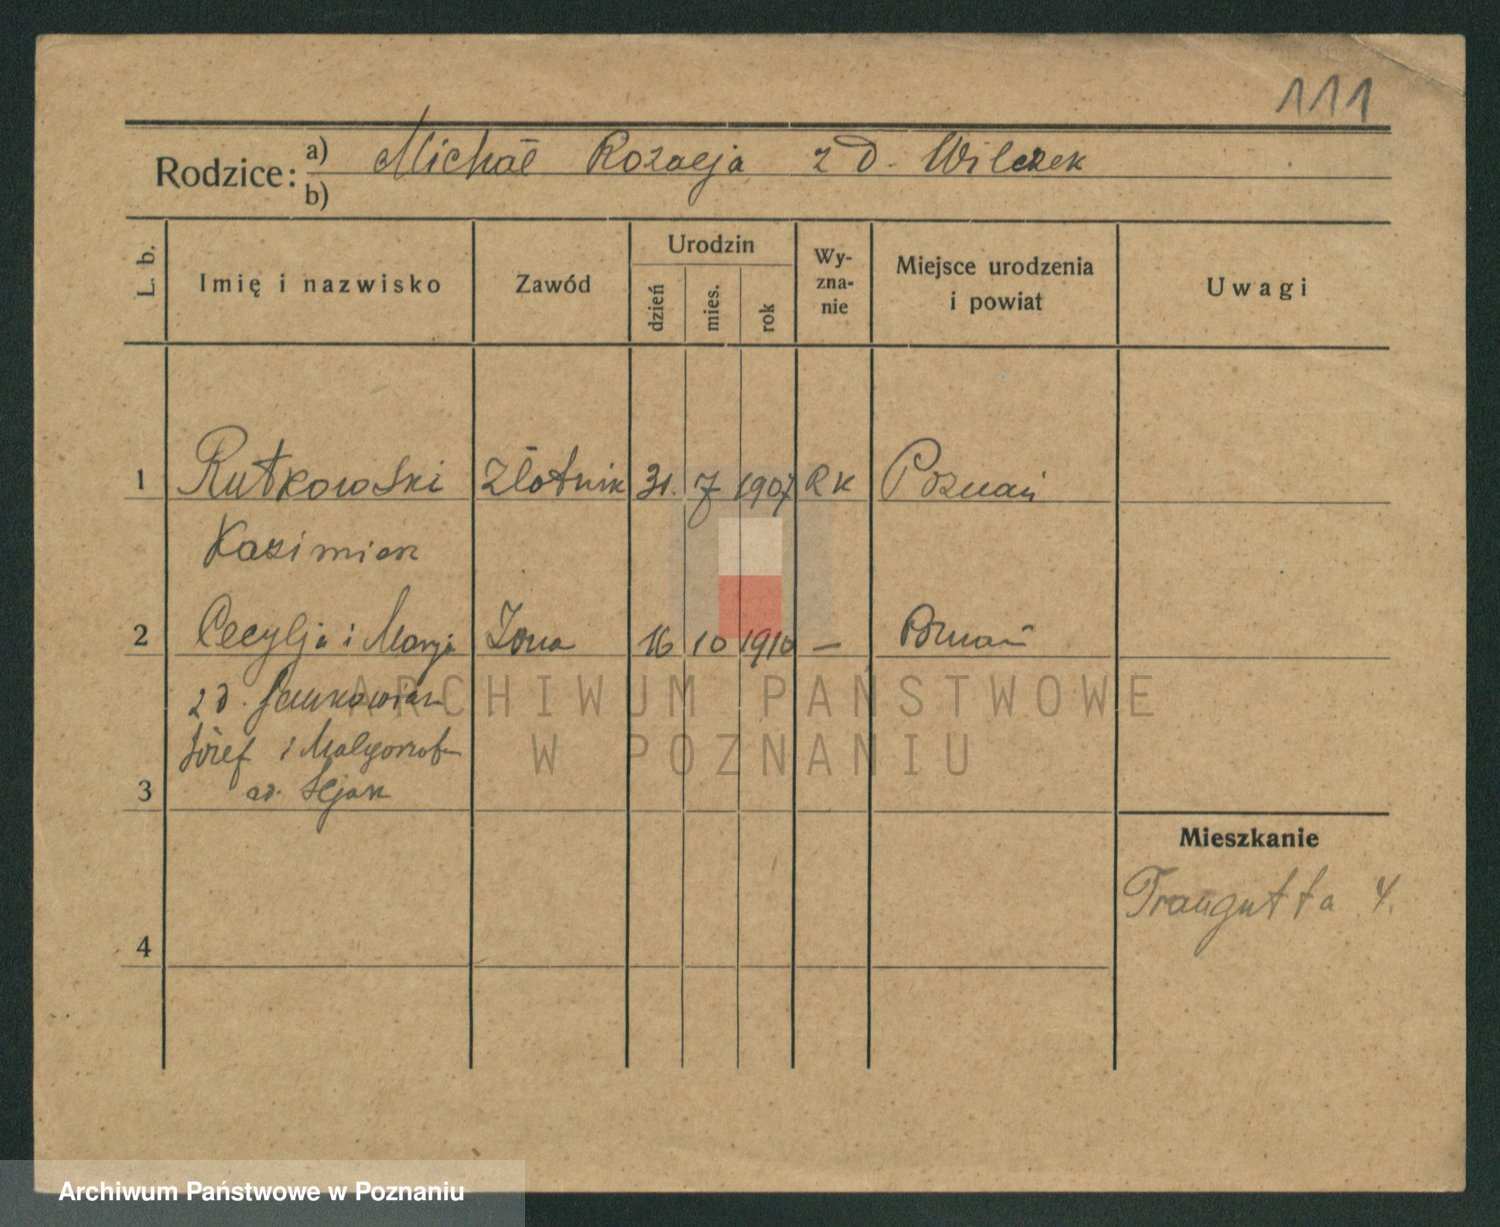 111
Rodzice: a) Michał Rozalja z d. Wilczek
b)
L. b.
Imię i nazwisko
Zawód
Urodzin
dzień
mies.
rok
Wy-
zna-
nie
Miejsce urodzenia
i powiat
Uwagi
1 Rutkowski Złotnik 31. 7 1907 RK Poznań
Kazimierz
2 Cecylja i Marja Żona 16 10 1910 — Poznań
z d.
Józef i Małgorzata
3 zd.
Mieszkanie
Traugutta 4.
4
ARCHIWUM PAŃSTWOWE
W POZNANIU
Archiwum Państwowe w Poznaniu